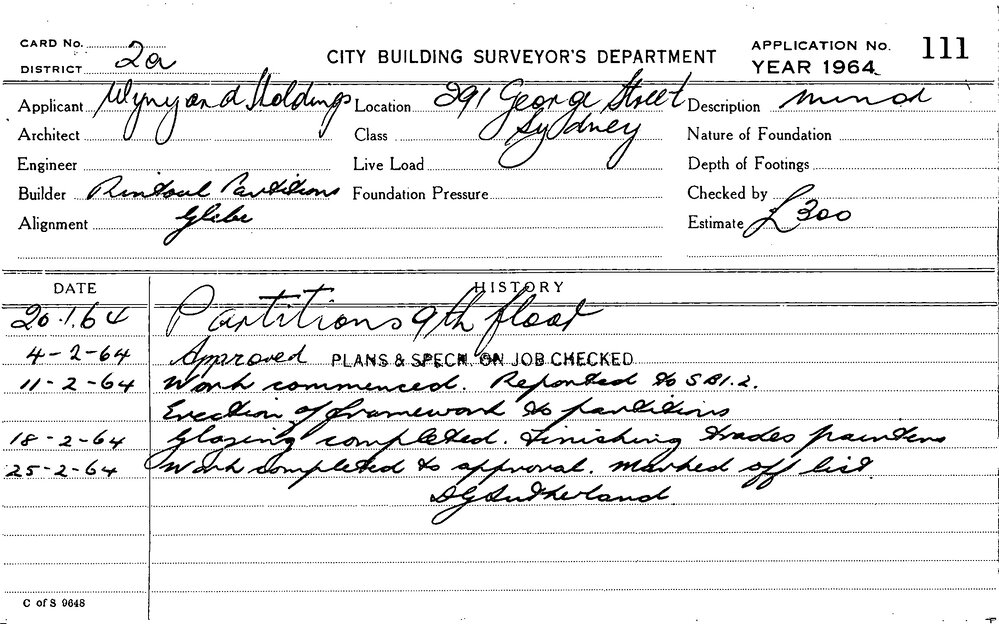 CARD No.
DISTRICT 2a
CITY BUILDING SURVEYOR'S DEPARTMENT
APPLICATION No. 111
YEAR 1964
Applicant Wynyard Holdings Location 291 George Street Description minor
Architect Class Sydney Nature of Foundation
Engineer Live Load Depth of Footings
Builder Rintoul Partitions Foundation Pressure Checked by
Alignment Glebe Estimate £300
DATE HISTORY
20.1.64 Partitions 9th floor
4-2-64 Approved PLANS & SPECN. ON JOB CHECKED
11-2-64 Work commenced. Reported to SBI.2.
Erection of framework to partitions
18-2-64 Glazing completed. Finishing trades painters
25-2-64 Work completed to approval. Marked off list
DG Sutherland
C of S 9648